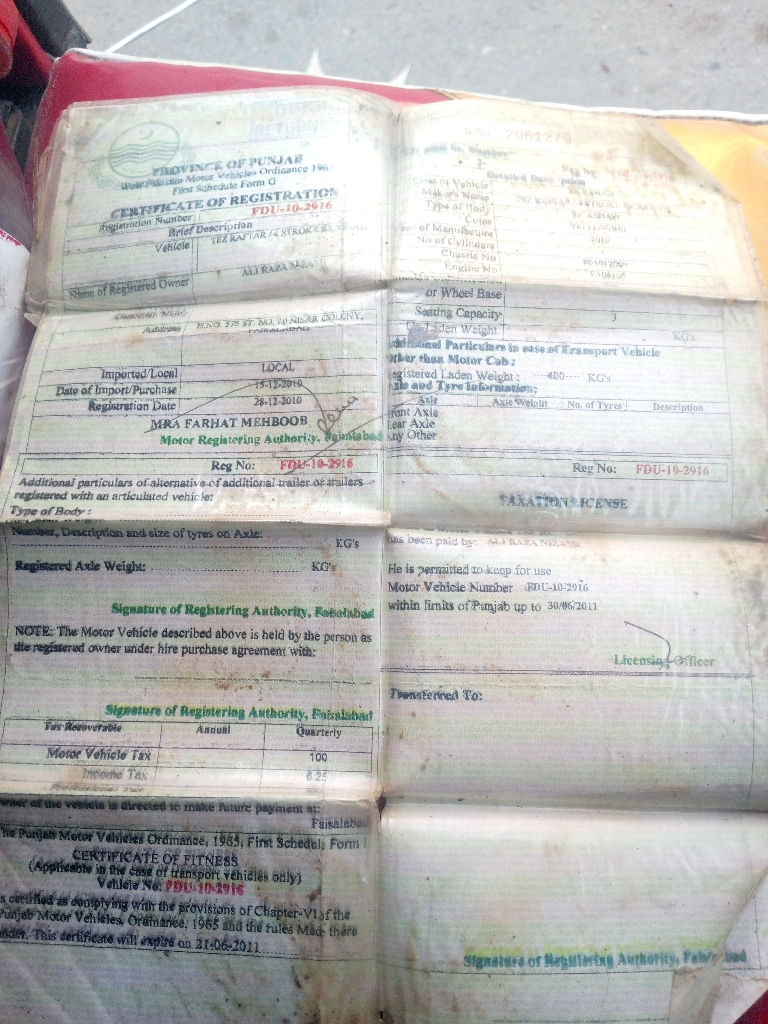 PROVINCE OF PUNJAB
West Pakistan Motor Vehicles Ordinance 196
First Schedule Form G
CERTIFICATE OF REGISTRATION
Registration Number FDU-10-2916
Brief Description
Vehicle TEZ RAFTAR / 4 STROKE
Name of Registered Owner ALI RAZA
Address H.NO. 375 ST. NO. 20 NISAR COLONY,
FAISALABAD
Imported/Local LOCAL
Date of Import/Purchase 15-12-2010
Registration Date 28-12-2010
MRA FARHAT MEHBOOB
Motor Registering Authority, Faisalabad
Reg No: FDU-10-2916
Additional particulars of alternative of additional trailer or trailers
registered with an articulated vehicle:
Type of Body :
Number, Description and size of tyres on Axle:
KG's
Registered Axle Weight: KG's
Signature of Registering Authority, Faisalabad
NOTE: The Motor Vehicle described above is held by the person as
the registered owner under hire purchase agreement with:
Signature of Registering Authority, Faisalabad
Tax Recoverable Annual Quarterly
Motor Vehicle Tax 100
Income Tax 6.25
Professional Tax
owner of the vehicle is directed to make future payment at:
Faisalabad
The Punjab Motor Vehicles Ordinance, 1965, First Schedule Form
CERTIFICATE OF FITNESS
(Applicable in the case of transport vehicles only)
Vehicle No: FDU-10-2916
is certified as complying with the provisions of Chapter-VI of the
Punjab Motor Vehicles, Ordinance, 1965 and the rules Mad there
under. This certificate will expire on 21-06-2011
S.No. 2061279
Detailed Description
Class of Vehicle
Maker's Name
Type of Body
Color
of Manufacture
No of Cylinders
Chassis No
Engine No
or Wheel Base
Seating Capacity 3
Laden Weight KG's
Additional Particulars in case of Transport Vehicle
Other than Motor Cab :
Registered Laden Weight : 400 KG's
Axle and Tyre Information;
Axle Axle Weight No. of Tyres Description
Front Axle
Rear Axle
Any Other
Reg No: FDU-10-2916
TAXATION LICENSE
has been paid by: ALI RAZA
He is permitted to keep for use
Motor Vehicle Number FDU-10-2916
within limits of Punjab up to 30/06/2011
Licensing Officer
Transferred To:
Signature of Registering Authority, Faisalabad